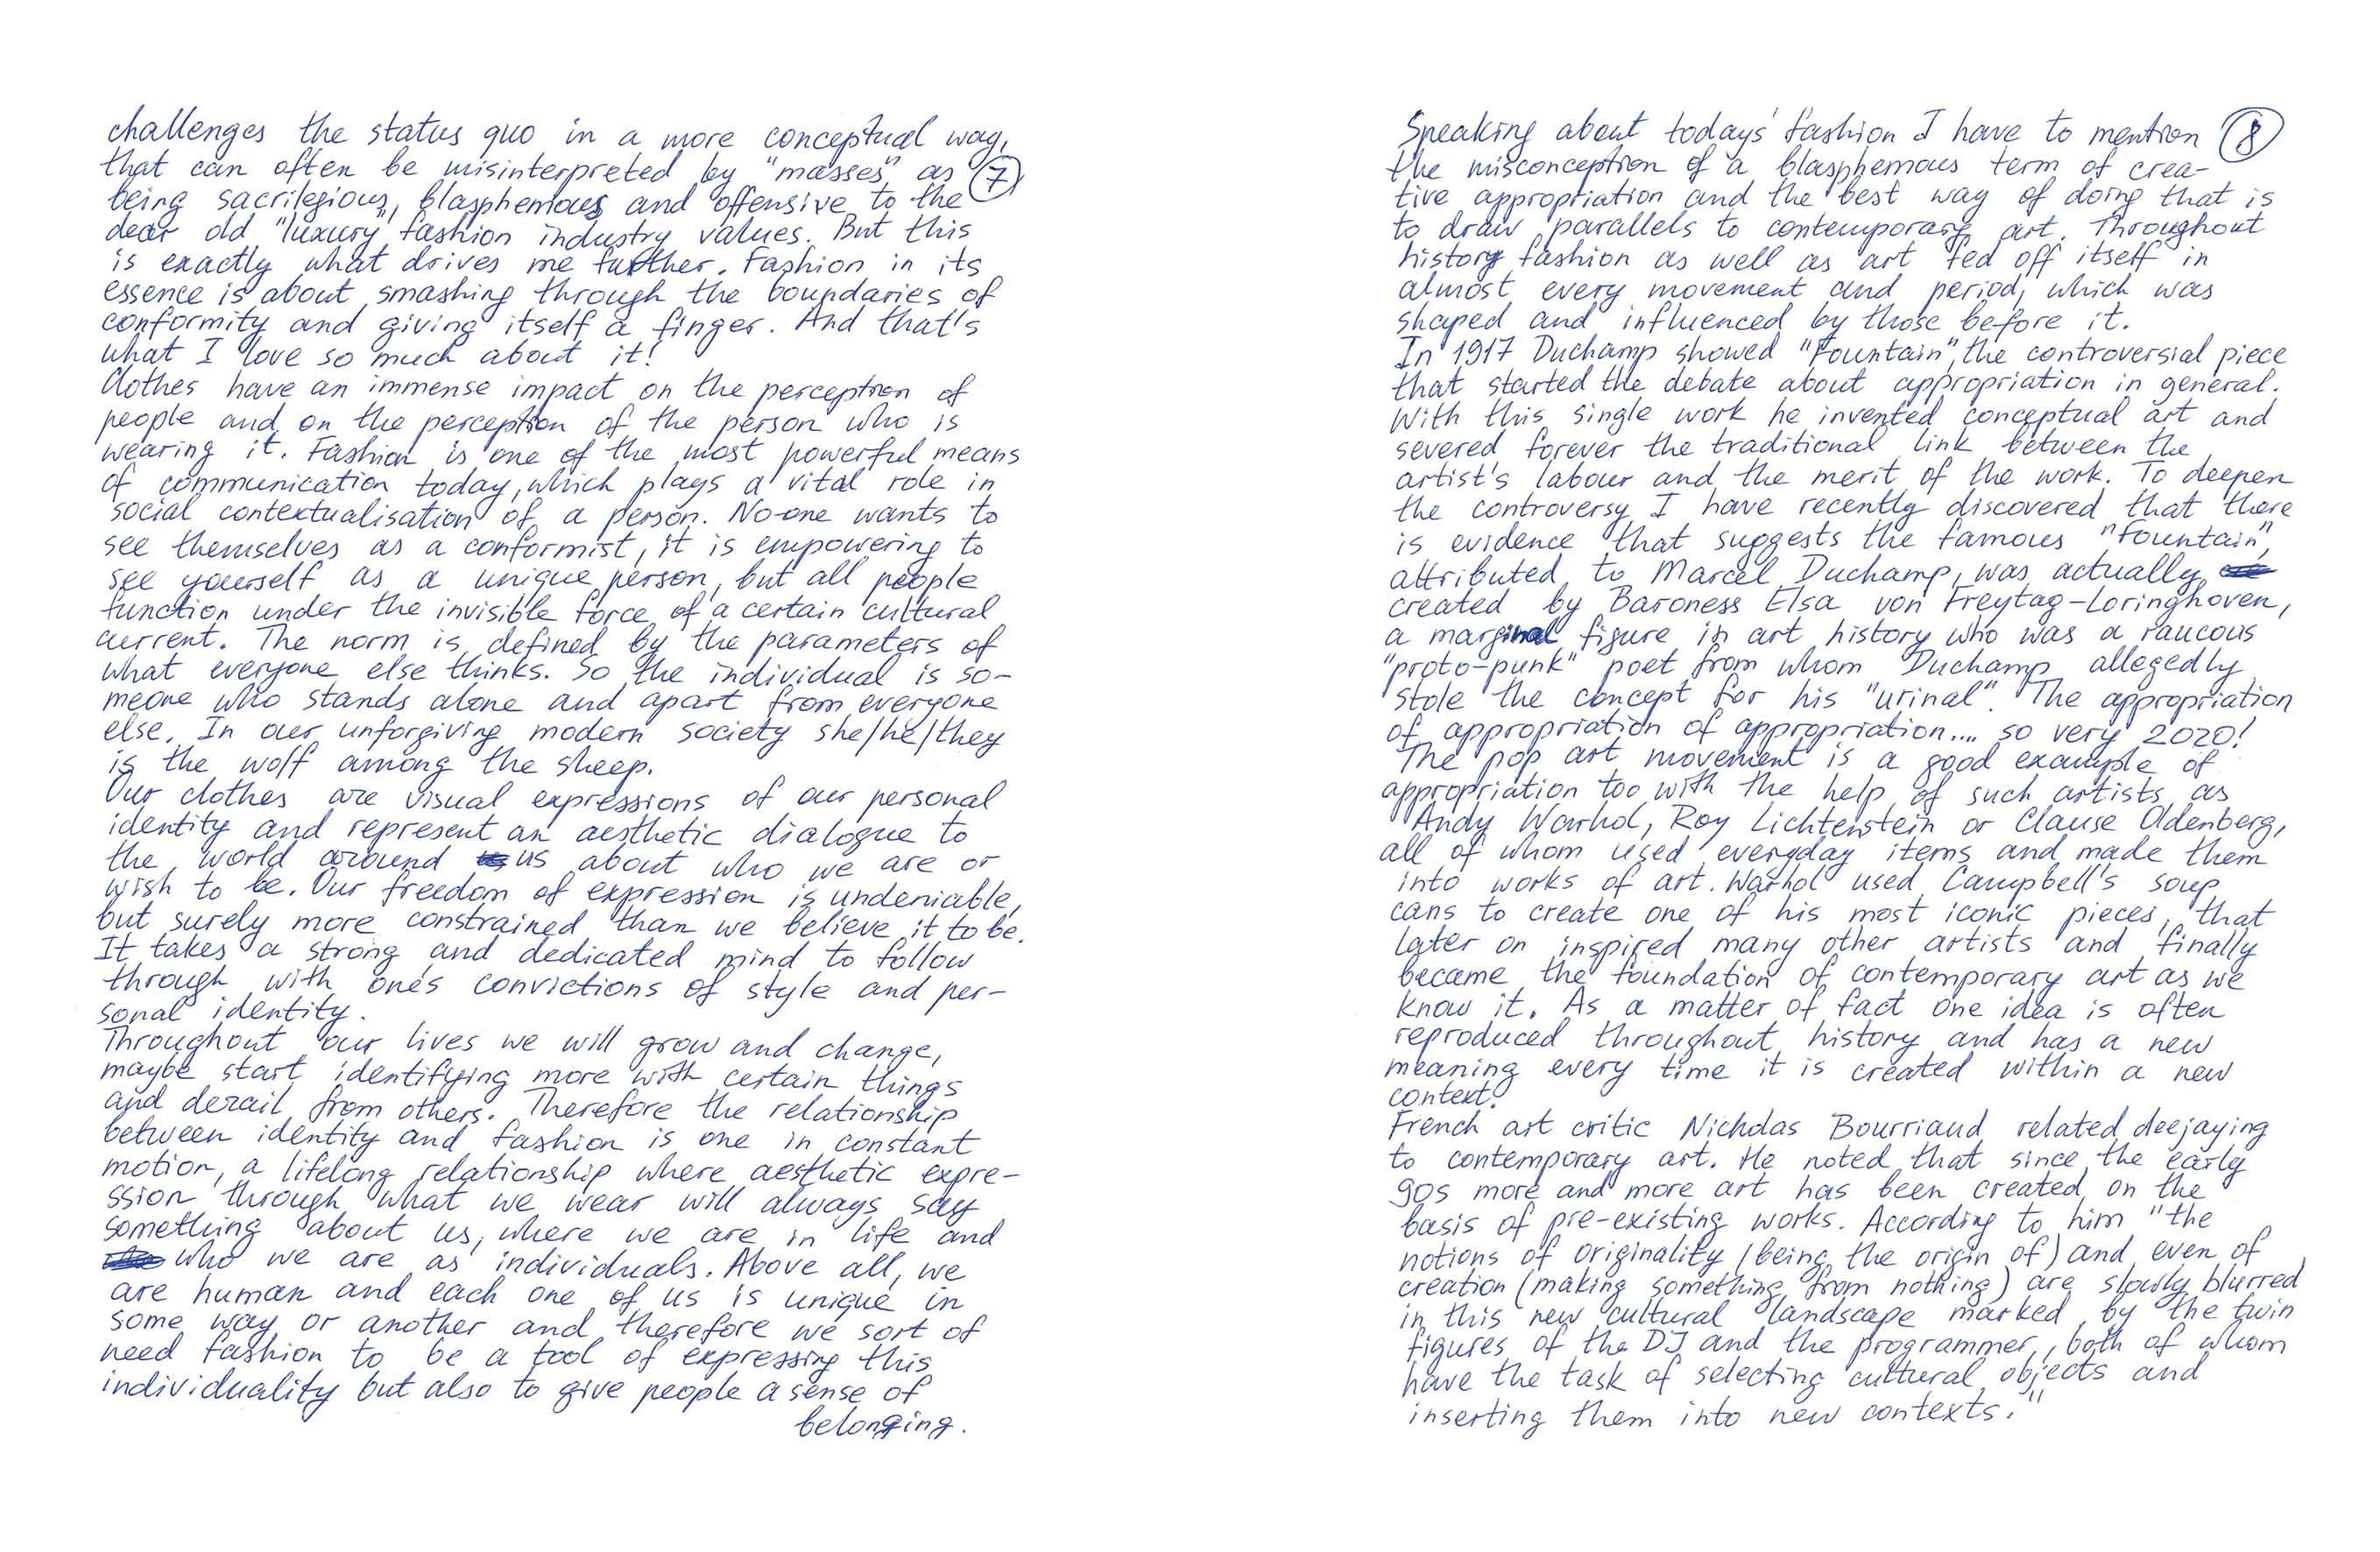 challenges the status quo in a more conceptual way,
that can often be misinterpreted by "masses" as 7
being sacrilegious, blasphemous and offensive to the
dear old "luxury" fashion industry values. But this
is exactly what drives me further. Fashion in its
essence is about smashing through the boundaries of
conformity and giving itself a finger. And that's
what I love so much about it!
Clothes have an immense impact on the perception of
people and on the perception of the person who is
wearing it. Fashion is one of the most powerful means
of communication today, which plays a vital role in
social contextualisation of a person. No-one wants to
see themselves as a conformist, it is empowering to
see yourself as a unique person, but all people
function under the invisible force of a certain cultural
current. The norm is defined by the parameters of
what everyone else thinks. So the individual is so-
meone who stands alone and apart from everyone
else. In our unforgiving modern society she/he/they
is the wolf among the sheep.
Our clothes are visual expressions of our personal
identity and represent an aesthetic dialogue to
the world around us about who we are or
wish to be. Our freedom of expression is undeniable,
but surely more constrained than we believe it to be.
It takes a strong and dedicated mind to follow
through with one's convictions of style and per-
sonal identity.
Throughout our lives we will grow and change,
maybe start identifying more with certain things
and derail from others. Therefore the relationship
between identity and fashion is one in constant
motion, a lifelong relationship where aesthetic expre-
ssion through what we wear will always say
something about us, where we are in life and
who we are as individuals. Above all, we
are human and each one of us is unique in
some way or another and therefore we sort of
need fashion to be a tool of expressing this
individuality but also to give people a sense of
belonging.
Speaking about todays' fashion I have to mention 8
the misconception of a blasphemous term of crea-
tive appropriation and the best way of doing that is
to draw parallels to contemporary art. Throughout
history fashion as well as art fed off itself in
almost every movement and period, which was
shaped and influenced by those before it.
In 1917 Duchamp showed "Fountain", the controversial piece
that started the debate about appropriation in general.
With this single work he invented conceptual art and
severed forever the traditional link between the
artist's labour and the merit of the work. To deepen
the controversy I have recently discovered that there
is evidence that suggests the famous "Fountain",
attributed to Marcel Duchamp, was actually
created by Baroness Elsa von Freytag-Loringhoven,
a marginal figure in art history who was a raucous
"proto-punk" poet from whom Duchamp allegedly
stole the concept for his "urinal". The appropriation
of appropriation of appropriation.... so very 2020!
The pop art movement is a good example of
appropriation too with the help of such artists as
Andy Warhol, Roy Lichtenstein or Clause Oldenberg,
all of whom used everyday items and made them
into works of art. Warhol used Campbell's soup
cans to create one of his most iconic pieces, that
later on inspired many other artists and finally
became the foundation of contemporary art as we
know it. As a matter of fact one idea is often
reproduced throughout history and has a new
meaning every time it is created within a new
context.
French art critic Nicholas Bourriaud related deejaying
to contemporary art. He noted that since the early
90s more and more art has been created on the
basis of pre-existing works. According to him "the
notions of originality (being the origin of) and even of
creation (making something from nothing) are slowly blurred
in this new cultural landscape marked by the twin
figures of the DJ and the programmer, both of whom
have the task of selecting cultural objects and
inserting them into new contexts."